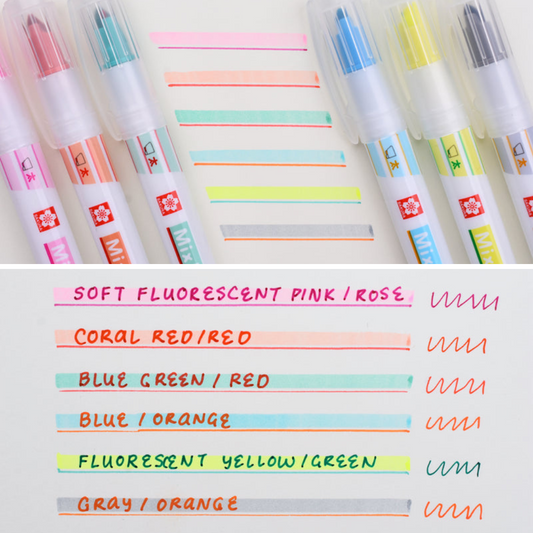 太
太
太
太
太
太
Mi
Mix
Mix
Mi
SOFT FLUORESCENT PINK / ROSE
CORAL RED/RED
BLUE GREEN / RED
BLUE / ORANGE
FLUORESCENT YELLOW/GREEN
GRAY / ORANGE